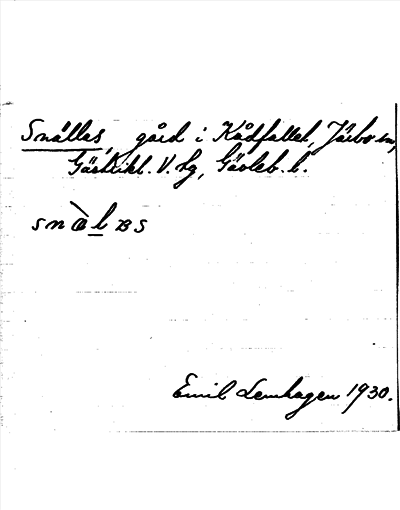 Snällas, gård i Kådfallet, Järbo sn,
Gästrikl. V. tg, Gävleb. l.
snälas
Emil Lemhagen 1930.